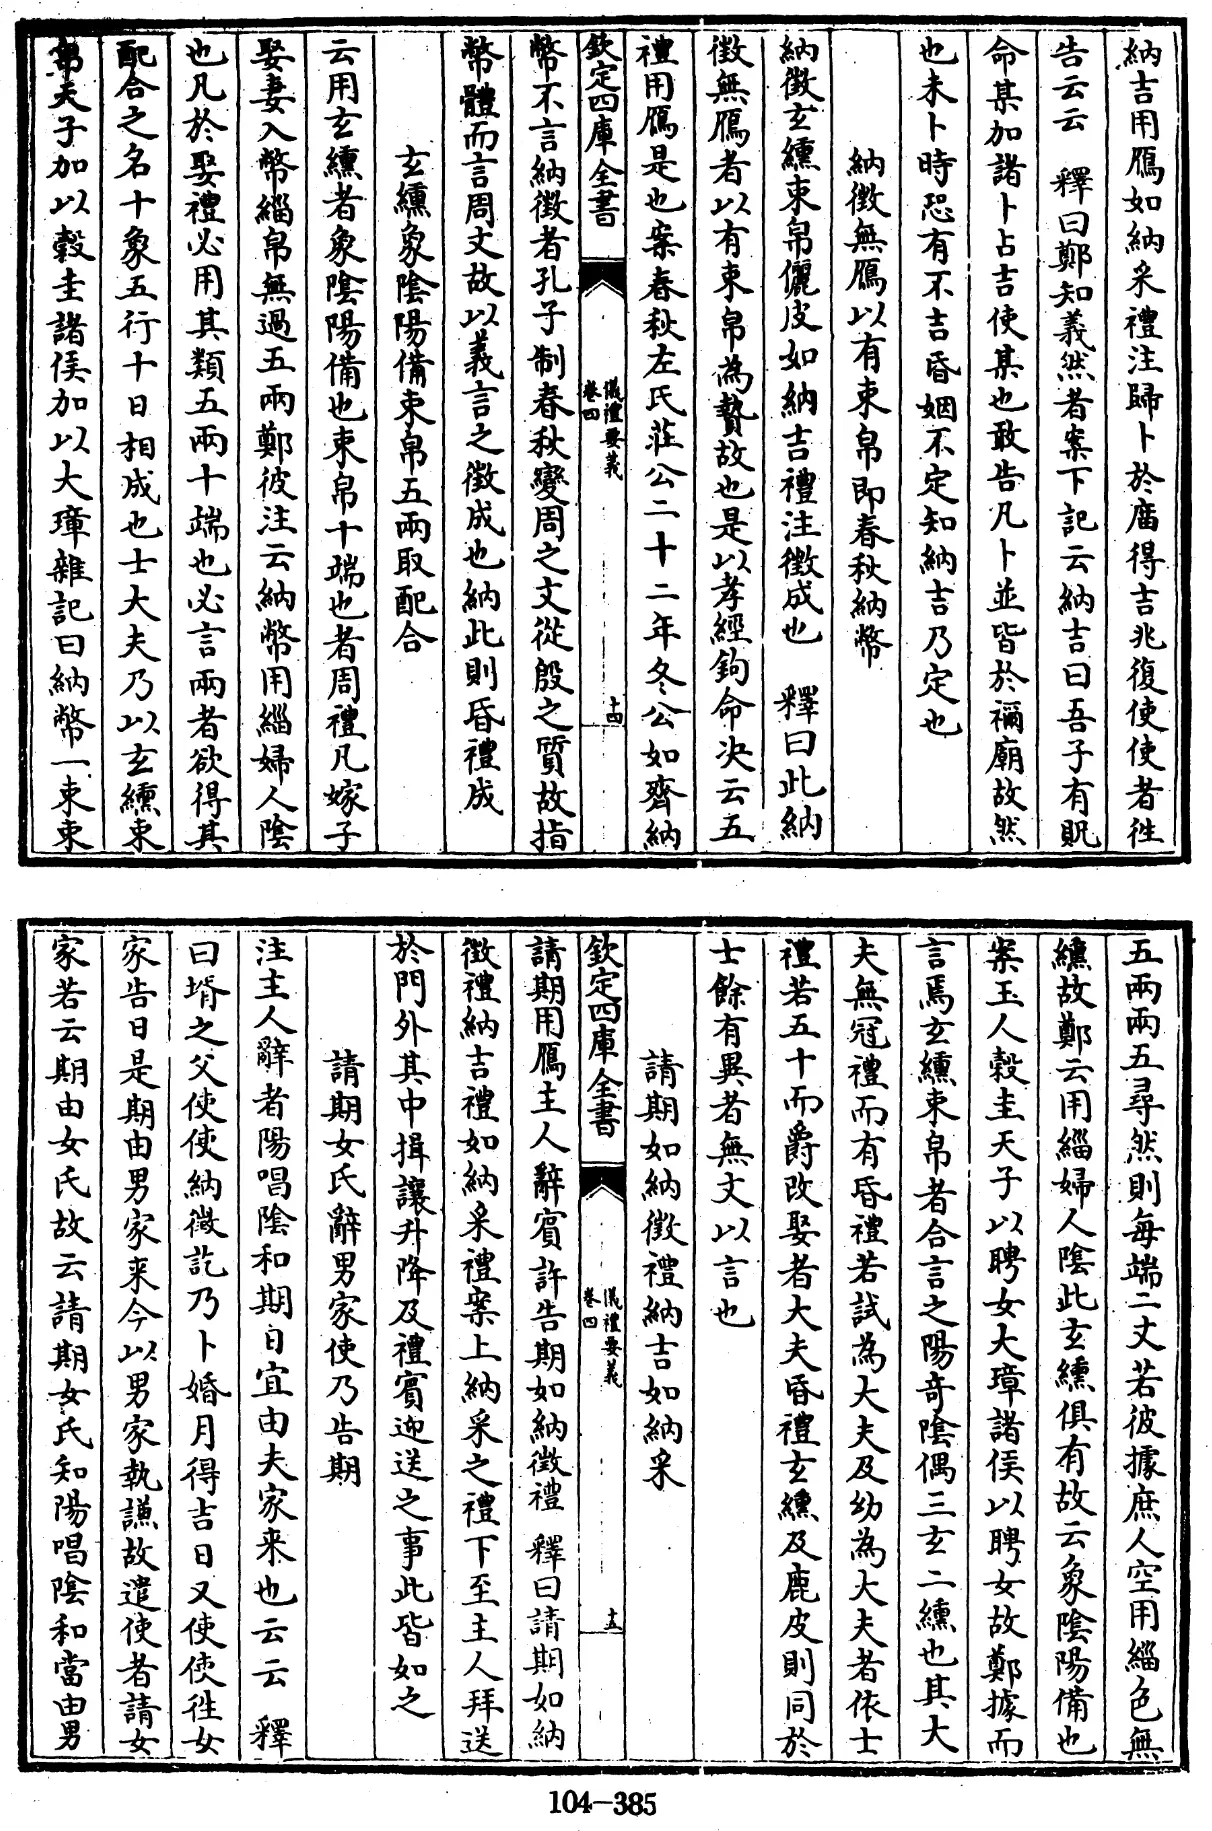 納吉用鴈如納采禮注歸卜於廟得吉兆復使使者徃
告云云　釋曰鄭知義然者案下記云納吉曰吾子有貺
命某加諸卜占吉使某也敢告凡卜並皆於禰廟故然
也未卜時恐有不吉昏姻不定知納吉乃定也
納徵無鴈以有束帛即春秋納幣
納徵玄纁束帛儷皮如納吉禮注徵成也　釋曰此納
徵無鴈者以有束帛為贄故也是以孝經鉤命决云五
禮用鴈是也案春秋左氏莊公二十二年冬公如齊納
欽定四庫全書
儀禮要義
卷四
十四
幣不言納徵者孔子制春秋變周之文從殷之質故指
幣體而言周文故以義言之徵成也納此則昏禮成
玄纁象陰陽備束帛五兩取配合
云用玄纁者象陰陽備也束帛十端也者周禮凡嫁子
娶妻入幣緇帛無過五兩鄭彼注云納幣用緇婦人陰
也凡於娶禮必用其類五兩十端也必言兩者欲得其
配合之名十象五行十日相成也士大夫乃以玄纁束
帛天子加以穀圭諸侯加以大璋雜記曰納幣一束束
五兩兩五尋然則每端二丈若彼據庶人空用緇色無
纁故鄭云用緇婦人陰此玄纁俱有故云象陰陽備也
案玉人穀圭天子以聘女大璋諸侯以聘女故鄭據而
言焉玄纁束帛者合言之陽竒陰偶三玄二纁也其大
夫無冠禮而有昏禮若試為大夫及幼為大夫者依士
禮若五十而爵改娶者大夫昏禮玄纁及鹿皮則同於
士餘有異者無文以言也
請期如納徵禮納吉如納采
欽定四庫全書
儀禮要義
卷四
十五
請期用鴈主人辭賓許告期如納徵禮　釋曰請期如納
徵禮納吉禮如納采禮案上納采之禮下至主人拜送
於門外其中揖讓升降及禮賓迎送之事此皆如之
請期女氏辭男家使乃告期
注主人辭者陽唱陰和期日宜由夫家来也云云　釋
曰壻之父使使納徵訖乃卜婚月得吉日又使使徃女
家告日是期由男家来今以男家執謙故遣使者請女
家若云期由女氏故云請期女氏知陽唱陰和當由男
104—385